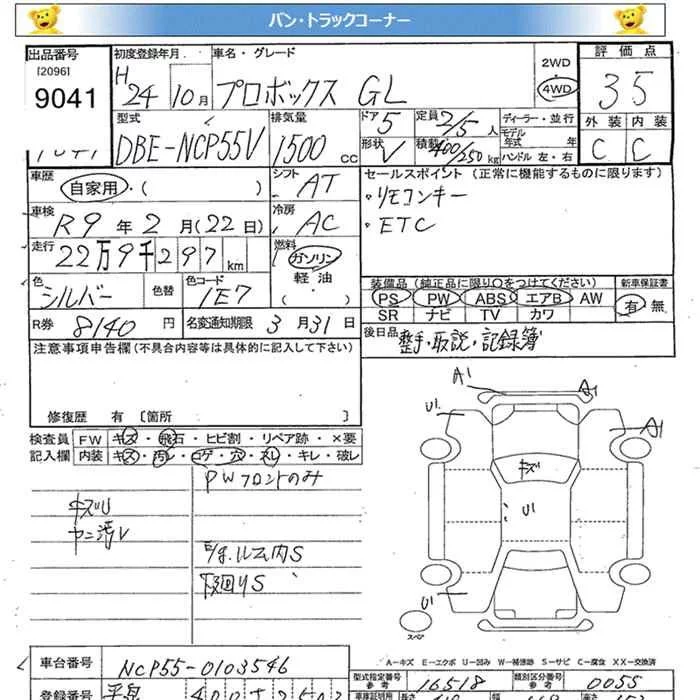 バン・トラックコーナー
出品番号 初度登録年月 車名・グレード 2WD 評価点
[2096]
9041 H 24 10月 プロボックス GL 4WD 35
型式 排気量 ドア 定員 ディーラー・並行 外装 内装
DBE-NCP55V 1500 cc 5 2/5人 モデル年式 年
形状 積載 ハンドル 左・右
V 400/250 kg C C
車歴 シフト セールスポイント(正常に機能するものに限ります)
自家用・( ) AT ・リモコンキー
車検 冷房 ・ETC
R9年2月(22日) AC
走行 燃料
22万9千297km ガソリン
軽油
・( )
色 色替 色コード 装備品(純正品に限り○をつけてください) 新車保証書
シルバー 1E7 PS PW ABS エアB AW 有・無
SR ナビ TV カワ
R券 8140円 名変通知期限 3月31日 後日品 整手・取説・記録簿
注意事項申告欄(不具合内容等は具体的に記入して下さい)
修復歴 有〔箇所 〕
検査員 FW キズ・飛石・ヒビ割・リペア跡・×要
記入欄 内装 キズ・汚レ・コゲ・穴・スレ・キレ・破レ
PWフロントのみ
キズU
ヤニ汚V
ルーム内S
下廻りS
A1
A1
U1
A1
キズ
U1
U1
スペア
A-キズ E-エクボ U-凹み W-補修跡 S-サビ C-腐食 XX-交換済
車台番号 NCP55-0103546 型式指定番号 参考 16518 類別区分番号 参考 0055
登録番号